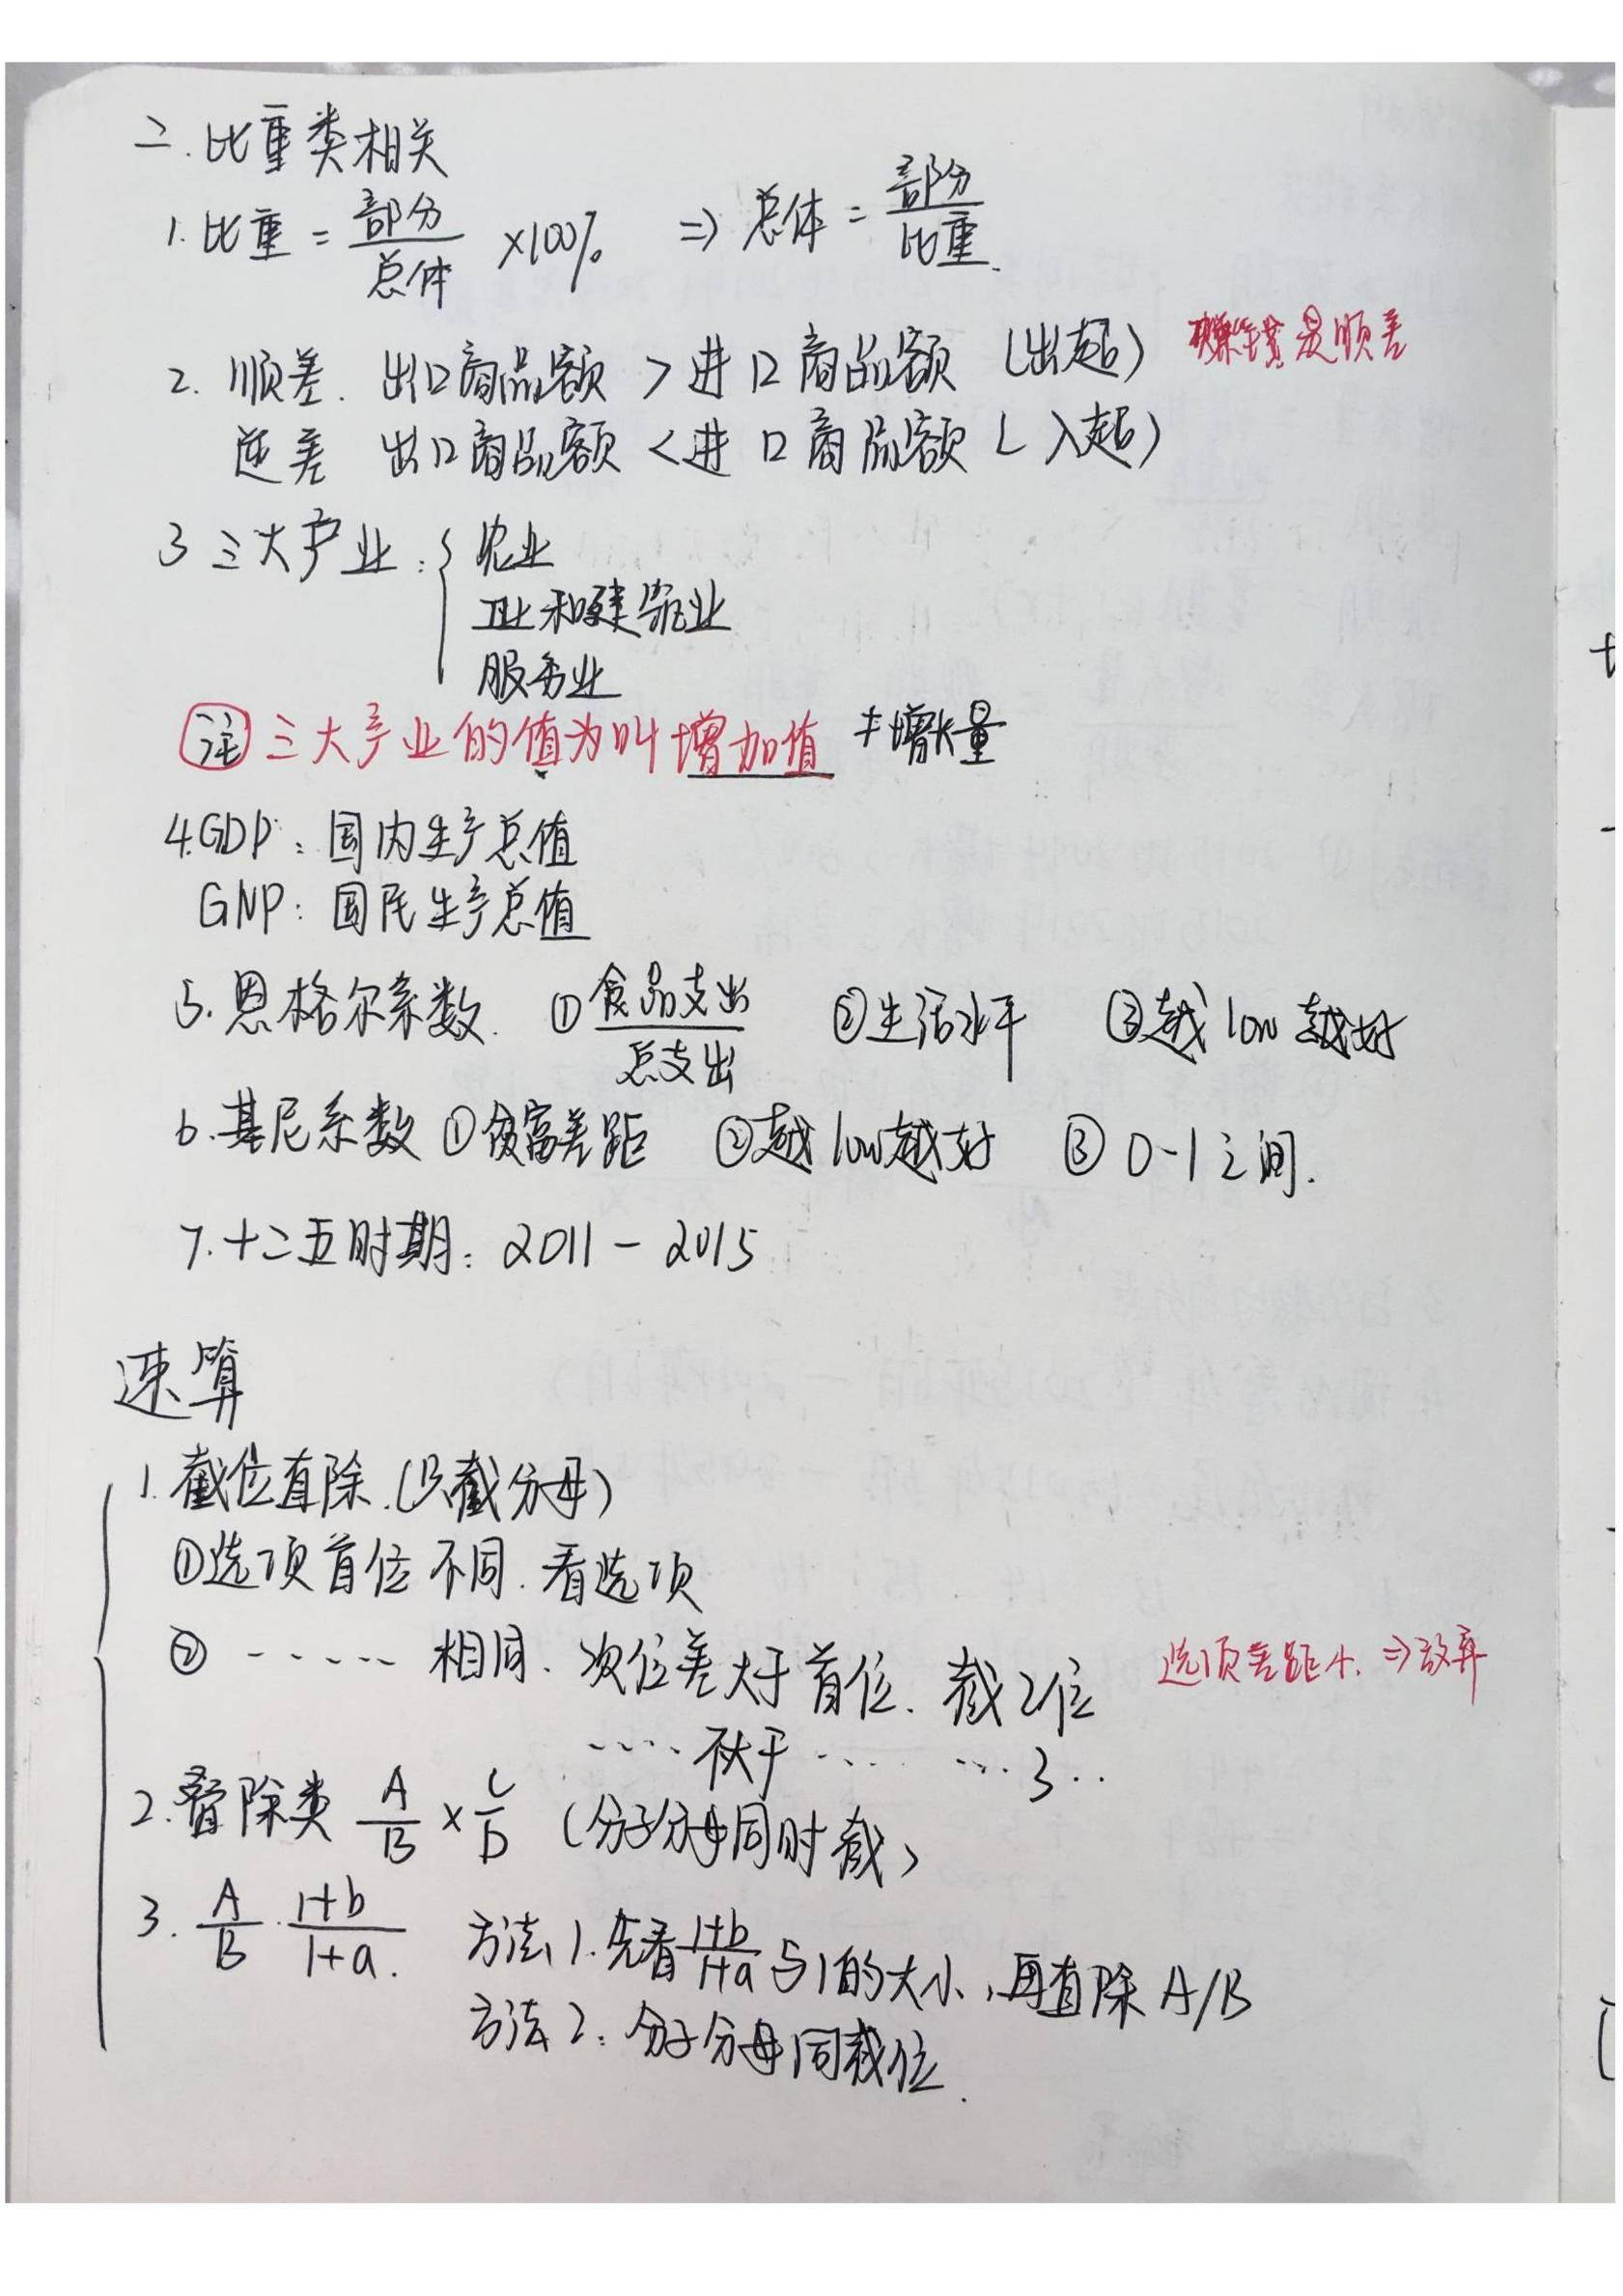 二.比重类相关
1.比重 = 部分/总体 ×100% ⇒ 总体 = 部分/比重.
2. 顺差. 出口商品额 > 进口商品额 (出超) 赚钱是顺差
逆差 出口商品额 < 进口商品额 (入超)
3 三大产业:{ 农业
工业和建筑业
服务业
注 三大产业的值为叫增加值 ≠增长量
4.GDP: 国内生产总值
GNP: 国民生产总值
5.恩格尔系数. ①食品支出/总支出 ②生活水平 ③越low越好
6.基尼系数 ①贫富差距 ②越low越好 ③ 0-1之间.
7.十二五时期: 2011-2015
速算
1.截位直除.(只截分母)
①选项首位不同.看选项
② ----- 相同. 次位差大于首位. 截2位 选项差距小.⇒放弃
---- 不大于 --- --- 3 ..
2.叠除类 A/B × C/D (分子分母同时截)
3. A/B · 1+b/1+a. 方法1.先看1+b/1+a与1的大小,再直除A/B
方法2: 分子分母同截位.